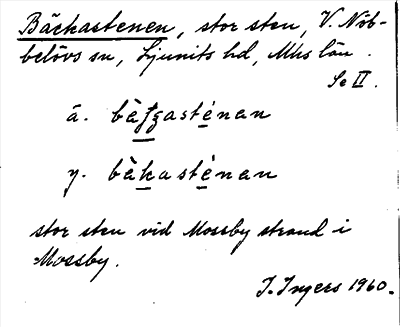 Bäckastenen, stor sten, V. Nöb-
belövs sn, Ljunits hd, Mhs län.
Se II.
ä. bàʃʒasténan
y. bàkasténan
stor sten vid Mossby strand i
Mossby.
I. Ingers 1960.